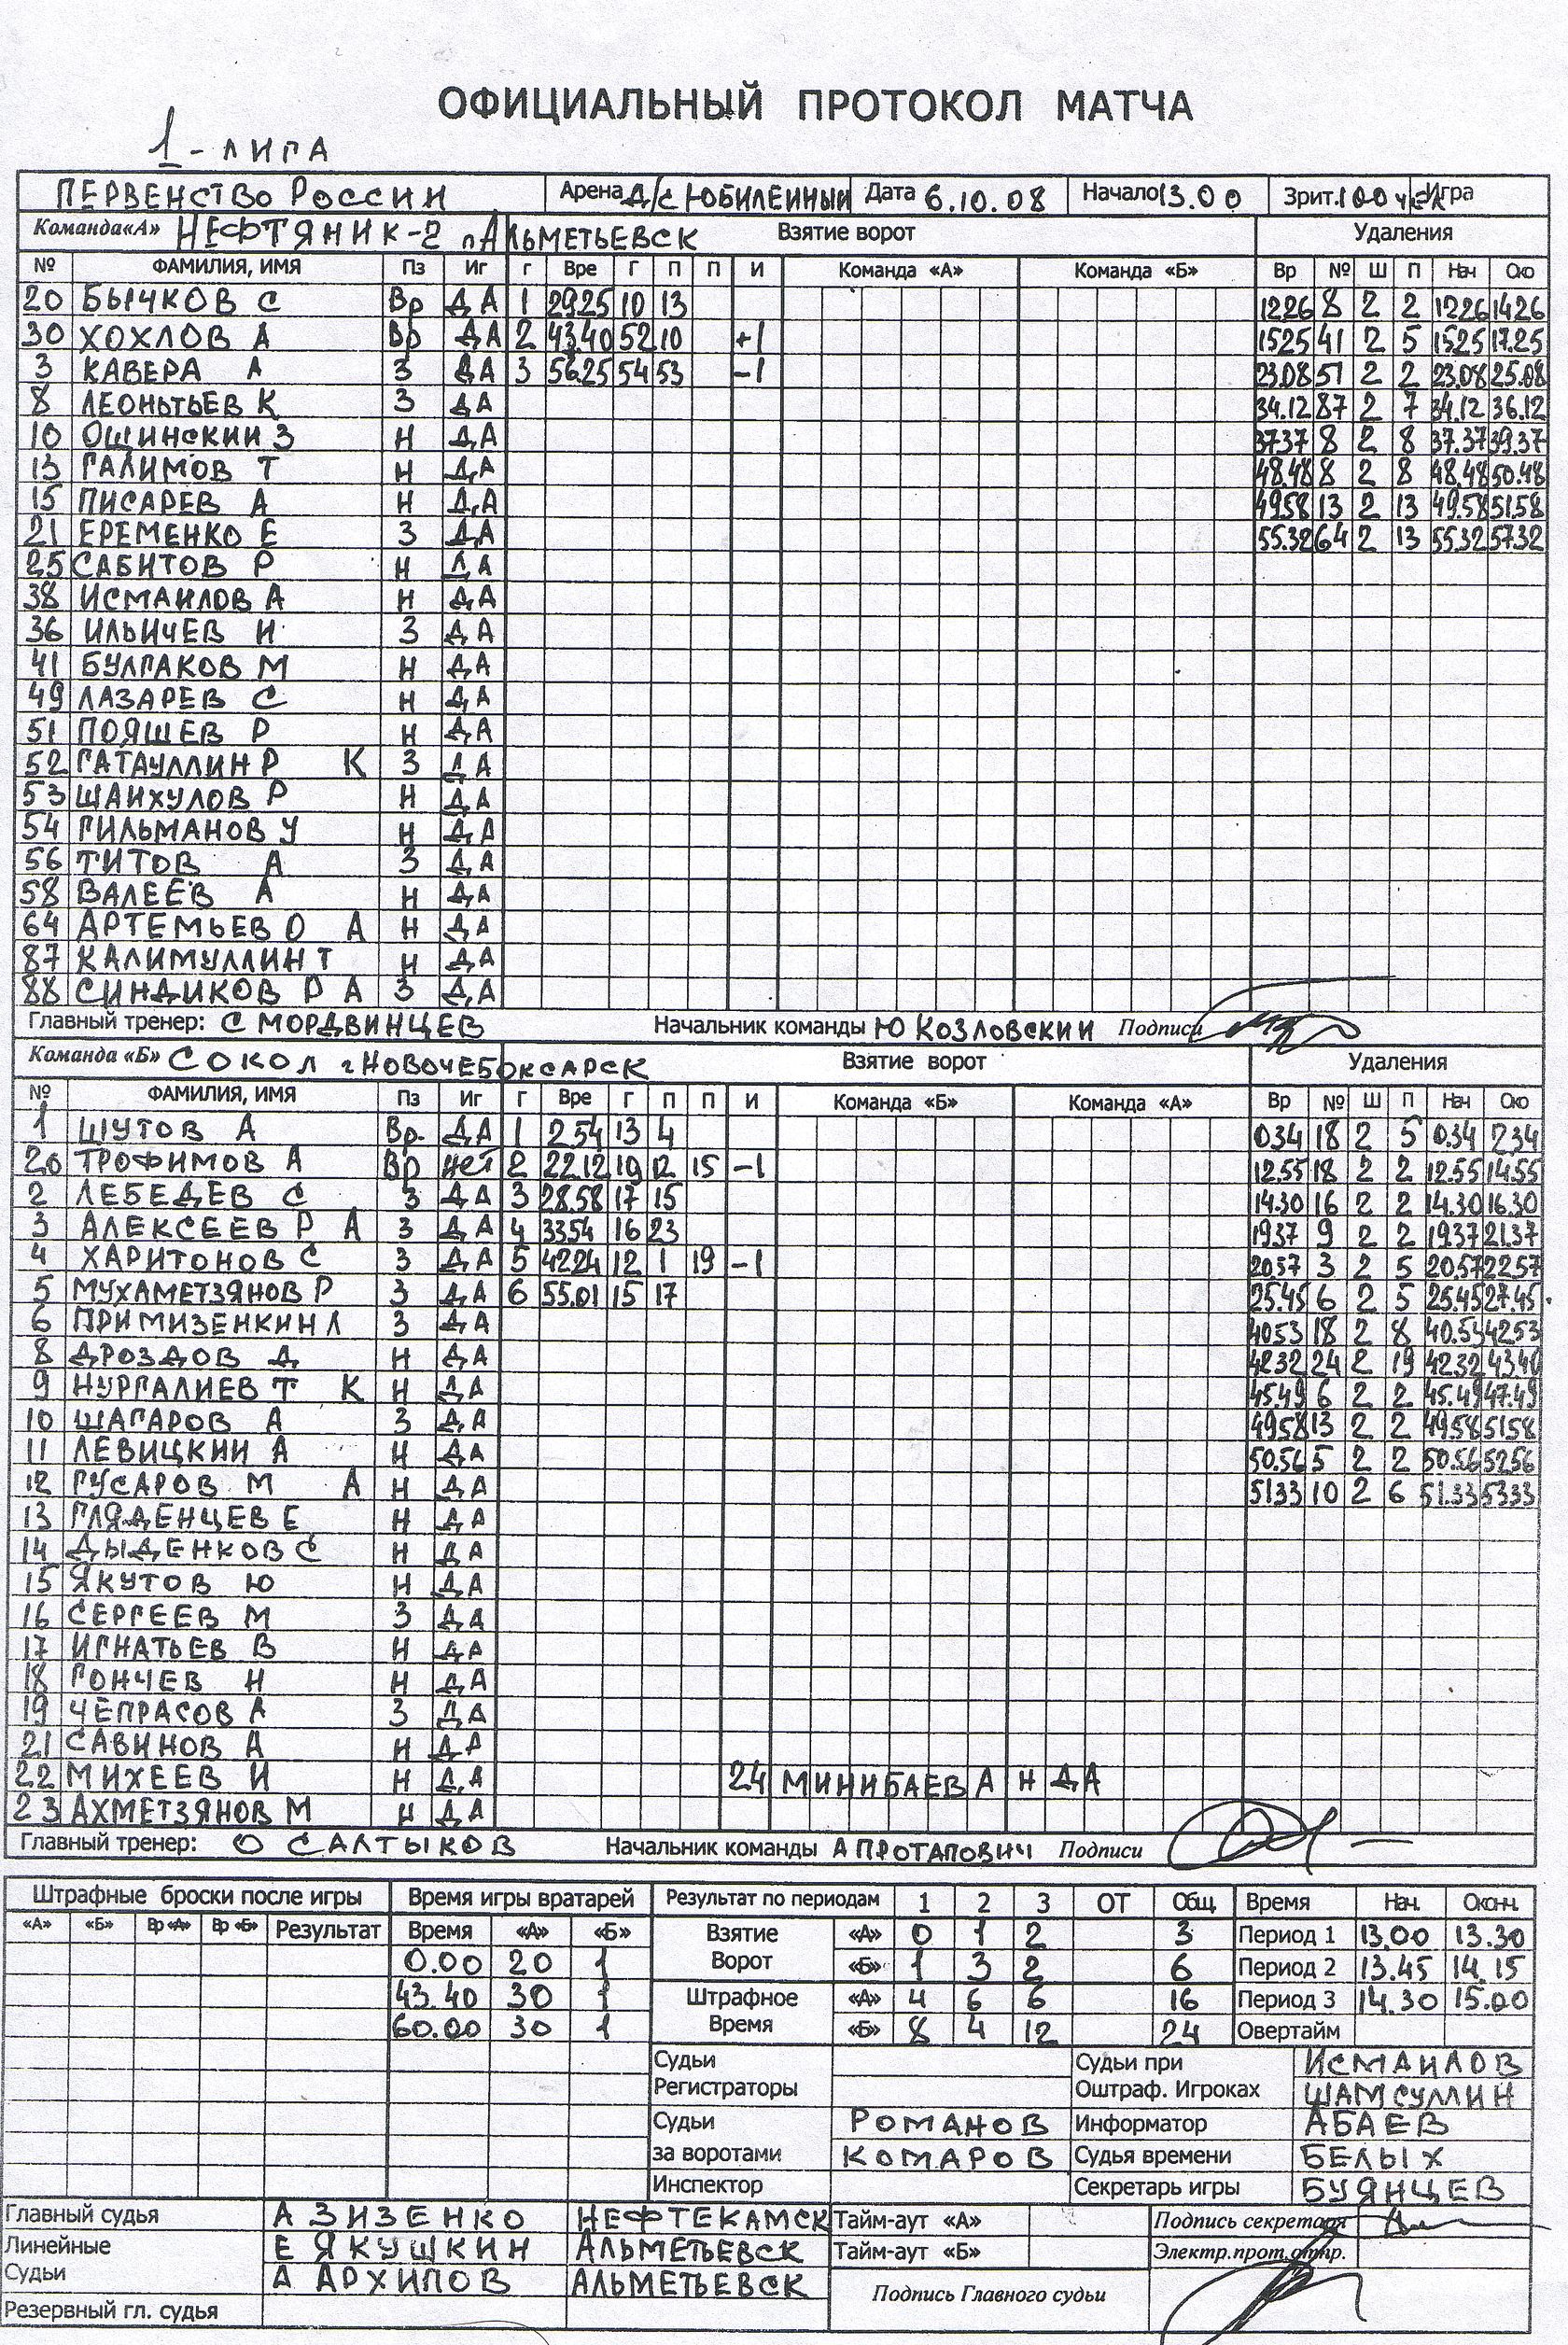 ОФИЦИАЛЬНЫЙ ПРОТОКОЛ МАТЧА
1 - ЛИГА
ПЕРВЕНСТВО РОССИИ Арена Д/С ЮБИЛЕЙНЫЙ Дата 6.10.08 Начало 13.00 Зрит. 100 чел Игра
Команда «А» НЕФТЯНИК-2 г АЛЬМЕТЬЕВСК Взятие ворот Удаления
№ ФАМИЛИЯ, ИМЯ Пз Иг Г Вре Г П П И Команда «А» Команда «Б» Вр № Ш П Нач Око
20 БЫЧКОВ С Вр ДА 1 29.25 10 13 12.26 8 2 2 12.26 14.26
30 ХОХЛОВ А Вр ДА 2 43.40 52 10 +1 15.25 41 2 5 15.25 17.25
3 КАВЕРА А З ДА 3 56.25 54 53 -1 23.08 51 2 2 23.08 25.08
8 ЛЕОНЬТЬЕВ К З ДА 34.12 87 2 7 34.12 36.12
10 ОШИНСКИЙ З Н ДА 37.37 8 2 8 37.37 39.37
13 ГАЛИМОВ Т Н ДА 48.48 8 2 8 48.48 50.48
15 ПИСАРЕВ А Н ДА 49.58 13 2 13 49.58 51.58
21 ЕРЕМЕНКО Е З ДА 55.32 64 2 13 55.32 57.32
25 САБИТОВ Р Н ДА
38 ИСМАИЛОВ А Н ДА
36 ИЛЬИЧЕВ И З ДА
41 БУЛГАКОВ М Н ДА
49 ЛАЗАРЕВ С Н ДА
51 ПОЯШЕВ Р Н ДА
52 ГАТАУЛЛИН Р К З ДА
53 ШАЙХУЛОВ Р Н ДА
54 ГИЛЬМАНОВ У Н ДА
56 ТИТОВ А З ДА
58 ВАЛЕЕВ А Н ДА
64 АРТЕМЬЕВ О А Н ДА
87 КАЛИМУЛЛИН Т Н ДА
88 СИНДИКОВ Р А З ДА
Главный тренер: С МОРДВИНЦЕВ Начальник команды Ю КОЗЛОВСКИЙ Подписи
Команда «Б» СОКОЛ г НОВОЧЕБОКСАРСК Взятие ворот Удаления
№ ФАМИЛИЯ, ИМЯ Пз Иг Г Вре Г П П И Команда «Б» Команда «А» Вр № Ш П Нач Око
1 ШУТОВ А Вр. ДА 1 2.54 13 4 0.34 18 2 5 0.34 2.34
20 ТРОФИМОВ А Вр НЕТ 2 22.12 19 12 15 -1 12.55 18 2 2 12.55 14.55
2 ЛЕБЕДЕВ С З ДА 3 28.58 17 15 14.30 16 2 2 14.30 16.30
3 АЛЕКСЕЕВ Р А З ДА 4 33.54 16 23 19.37 9 2 2 19.37 21.37
4 ХАРИТОНОВ С З ДА 5 42.24 12 1 19 -1 20.57 3 2 5 20.57 22.57
5 МУХАМЕТЗЯНОВ Р З ДА 6 55.01 15 17 25.45 6 2 5 25.45 27.45
6 ПРИМИЗЕНКИН Л З ДА 40.53 18 2 8 40.53 42.53
8 ДРОЗДОВ Д Н ДА 42.32 24 2 19 42.32 43.40
9 НУРГАЛИЕВ Т К Н ДА 45.49 6 2 2 45.49 47.49
10 ШАГАРОВ А З ДА 49.58 13 2 2 49.58 51.58
11 ЛЕВИЦКИЙ А Н ДА 50.56 5 2 2 50.56 52.56
12 ГУСАРОВ М А Н ДА 51.33 10 2 6 51.33 53.33
13 ГЛЯДЕНЦЕВ Е Н ДА
14 ДЫДЕНКОВ С Н ДА
15 ЯКУТОВ Ю Н ДА
16 СЕРГЕЕВ М З ДА
17 ИГНАТЬЕВ В Н ДА
18 ГОНЧЕВ Н Н ДА
19 ЧЕПРАСОВ А З ДА
21 САВИНОВ А Н ДА
22 МИХЕЕВ И Н ДА 24 МИНИБАЕВ А Н ДА
23 АХМЕТЗЯНОВ М Н ДА
Главный тренер: О САЛТЫКОВ Начальник команды А ПРОТАПОВИЧ Подписи
Штрафные броски после игры Время игры вратарей Результат по периодам 1 2 3 ОТ Общ. Время Нач. Оконч.
«А» «Б» Вр «А» Вр «Б» Результат Время «А» «Б» Взятие «А» 0 1 2 3 Период 1 13.00 13.30
0.00 20 1 Ворот «Б» 1 3 2 6 Период 2 13.45 14.15
43.40 30 1 Штрафное «А» 4 6 6 16 Период 3 14.30 15.00
60.00 30 1 Время «Б» 8 4 12 24 Овертайм
Судьи Судьи при ИСМАИЛОВ
Регистраторы Оштраф. Игроках ШАМСУЛЛИН
Судьи РОМАНОВ Информатор АБАЕВ
за воротами КОМАРОВ Судья времени БЕЛЫХ
Инспектор Секретарь игры БУЯНЦЕВ
Главный судья А ЗИЗЕНКО НЕФТЕКАМСК Тайм-аут «А» Подпись секретаря
Линейные Е ЯКУШКИН АЛЬМЕТЬЕВСК Тайм-аут «Б» Электр.прот.отпр.
Судьи А АРХИПОВ АЛЬМЕТЬЕВСК Подпись Главного судьи
Резервный гл. судья